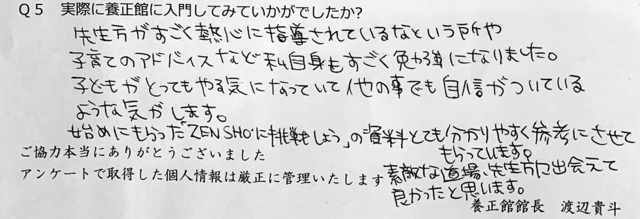 Q5 実際に養正館に入門してみていかがでしたか?
先生方がすごく熱心に指導されているなという所や
子育てのアドバイスなど私自身もすごく勉強になりました。
子どもがとってもやる気になっていて他の事でも自信がついている
ような気がします。
始めにもらった「ZENSHOに挑戦しよう」の資料とても分かりやすく参考にさせて
もらっています。
素敵な道場、先生方に出会えて
良かったと思います。
ご協力本当にありがとうございました
アンケートで取得した個人情報は厳正に管理いたします
養正館館長 渡辺貴斗